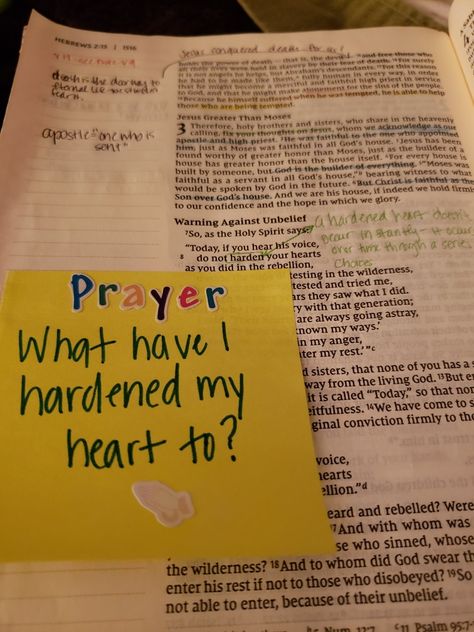 HEBREWS 2:15 | 1516
Jesus conquered death for us!
holds the power of death — that is, the devil — ¹⁵and free those who
all their lives were held in slavery by their fear of death. ¹⁶For surely
it is not angels he helps, but Abraham's descendants. ¹⁷For this reason
he had to be made like them, fully human in every way, in order
that he might become a merciful and faithful high priest in service
to God, and that he might make atonement for the sins of the people.
¹⁸Because he himself suffered when he was tempted, he is able to help
those who are being tempted.
death is the doorway to
eternal life
apostle "one who is
sent"
Jesus Greater Than Moses
3 Therefore, holy brothers and sisters, who share in the heavenly
calling, fix your thoughts on Jesus, whom we acknowledge as our
apostle and high priest. ²He was faithful to the one who appointed
him, just as Moses was faithful in all God's house. ³Jesus has been
found worthy of greater honor than Moses, just as the builder of a
house has greater honor than the house itself. ⁴For every house is
built by someone, but God is the builder of everything. ⁵"Moses was
faithful as a servant in all God's house," bearing witness to what
would be spoken by God in the future. ⁶But Christ is faithful as the
Son over God's house. And we are his house, if indeed we hold firmly
to our confidence and the hope in which we glory.
Warning Against Unbelief
⁷So, as the Holy Spirit says:
"Today, if you hear his voice,
⁸ do not harden your hearts
as you did in the rebellion,
a hardened heart doesn't
occur instantly - it occurs
over time through a series
choices
testing in the wilderness,
tested and tried me,
ars they saw what I did.
ry with that generation;
are always going astray,
nown my ways.'
in my anger,
ter my rest.'"c
d sisters, that none of you has a s
way from the living God. ¹³But e
it is called "Today," so that no
eitfulness. ¹⁴We have come to s
ginal conviction firmly to the
Prayer
What have I
hardened my
heart to?
voice,
hearts
ellion."d
eard and rebelled? Were
¹⁷And with whom was
se who sinned, whose
the wilderness? ¹⁸And to whom did God swear th
enter his rest if not to those who disobeyed? ¹⁹So
not able to enter, because of their unbelief.
Num. 12:7 c 11 Psalm 95:7-